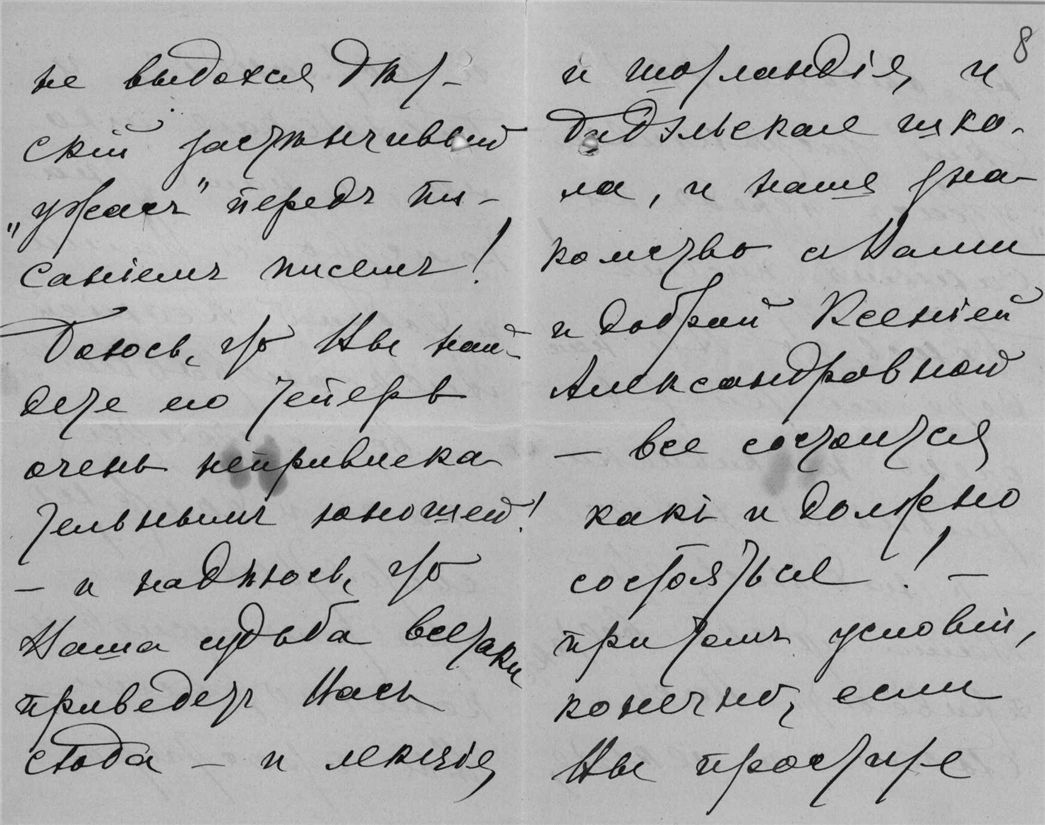 не выдохся дѣт-
скій застѣнчивый
„ужасъ" передъ пи-
саніемъ писемъ!
Боюсь, что Вы най-
дете его теперь
очень непривлека-
тельнымъ юношей!
— и надѣюсь, что
Ваша судьба всетаки
приведетъ Васъ
сюда — и лекція,
8
и Шотландія, и
шко-
ла, и наше зна-
комство съ Вами
и доброй Ксеніей
Александровной
— все состоится
какъ и должно
состояться! —
при томъ условіи,
конечно, если
Вы простите